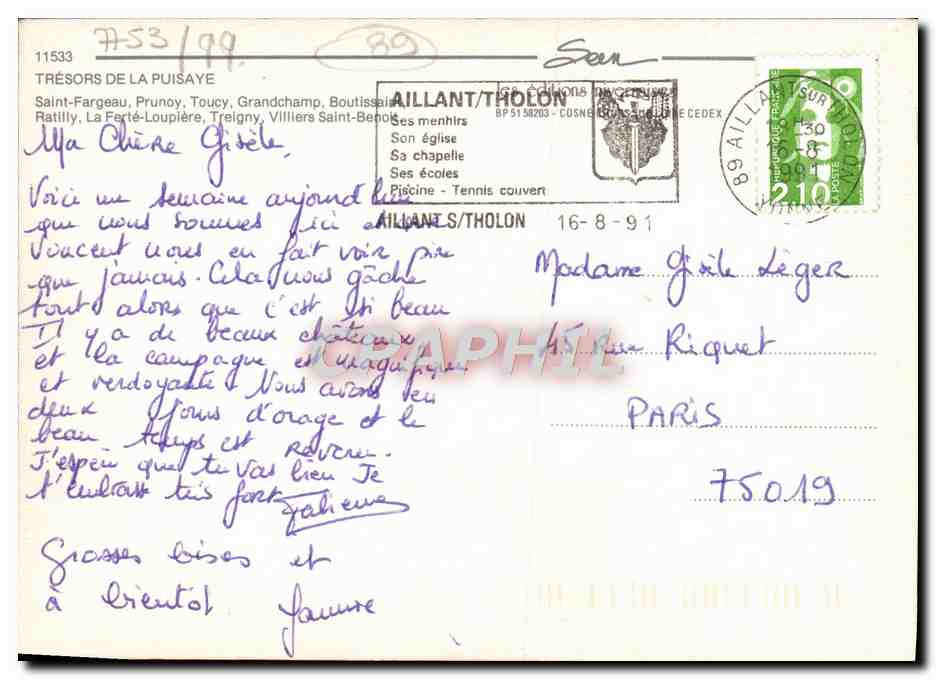 753/99.
89
11533
TRÉSORS DE LA PUISAYE
Saint-Fargeau, Prunoy, Toucy, Grandchamp, Boutissaint,
Ratilly, La Ferté-Loupière, Treigny, Villiers Saint-Benoit
BP 51 58203 - COSNE CEDEX
AILLANT/THOLON
Ses menhirs
Son église
Sa chapelle
Ses écoles
Piscine - Tennis couvert
AILLANT S/THOLON 16-8-91
89 AILLANT SUR THOLON
16-8
1991
YONNE
REPUBLIQUE FRANÇAISE
LA POSTE
2,10
Ma Chère Gisèle,
Voici une semaine aujourd'hui
que nous sommes ici et que
Vincent nous en fait voir pire
que jamais. Cela nous gâche
tout alors que c'est si beau
Il y a de beaux châteaux
et la campagne est magnifique
et verdoyante. Nous avons eu
deux jours d'orage et le
beau temps est revenu.
J'espère que tu vas bien Je
t'embrasse très fort
Grosses bises et
à bientôt
Madame Gisèle Léger
45 Rue Riquet
PARIS
75019
CPAPHIL